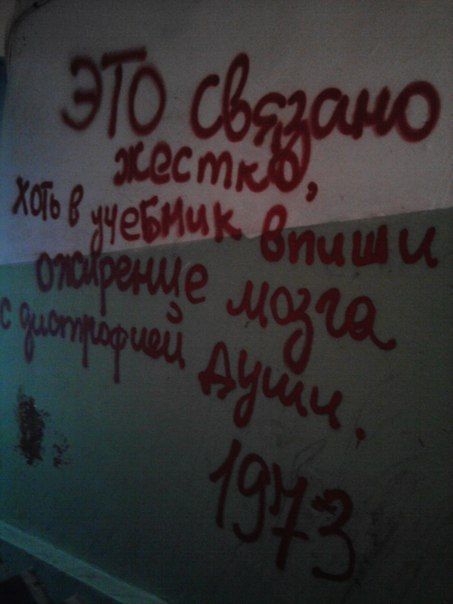 ЭТО СВЯЗАНО
ЖЕСТКО,
ХОТЬ В УЧЕБНИК ВПИШИ
ОЖИРЕНИЕ МОЗГА
С ДИСТРОФИЕЙ ДУШИ.
1973